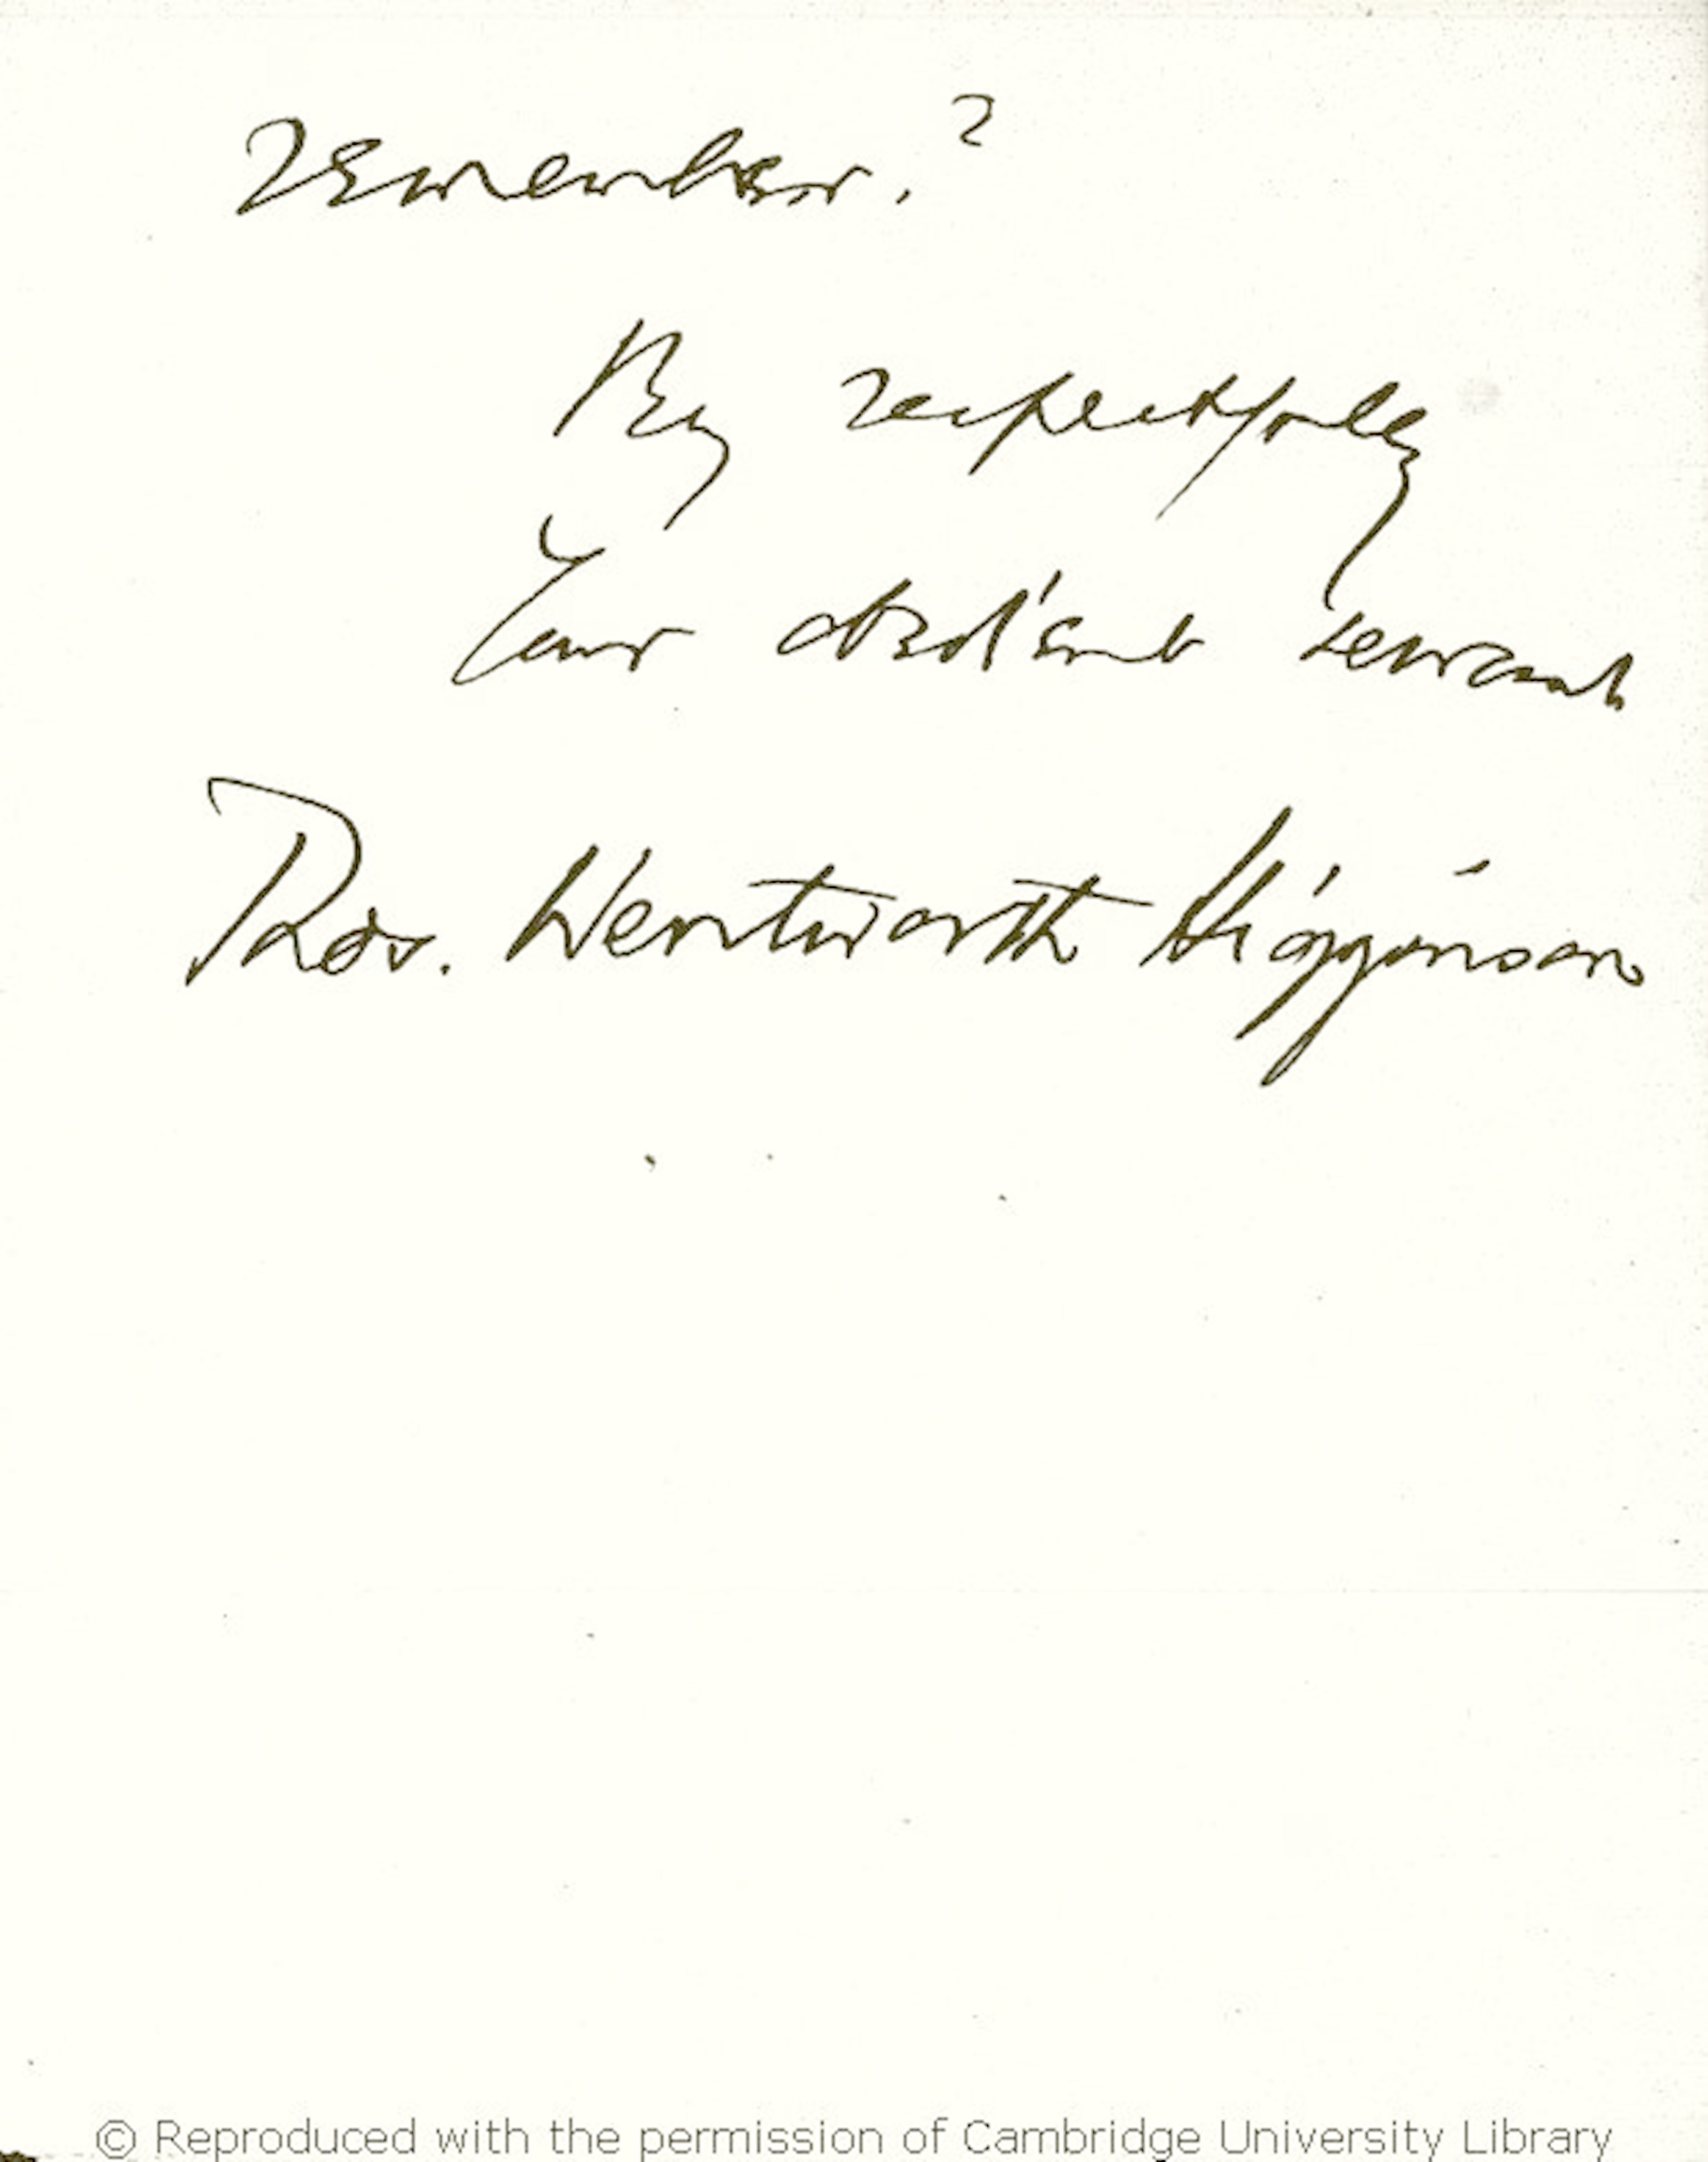 remember.?
Very respectfully
Your obedient servant
Thos. Wentworth Higginson
© Reproduced with the permission of Cambridge University Library